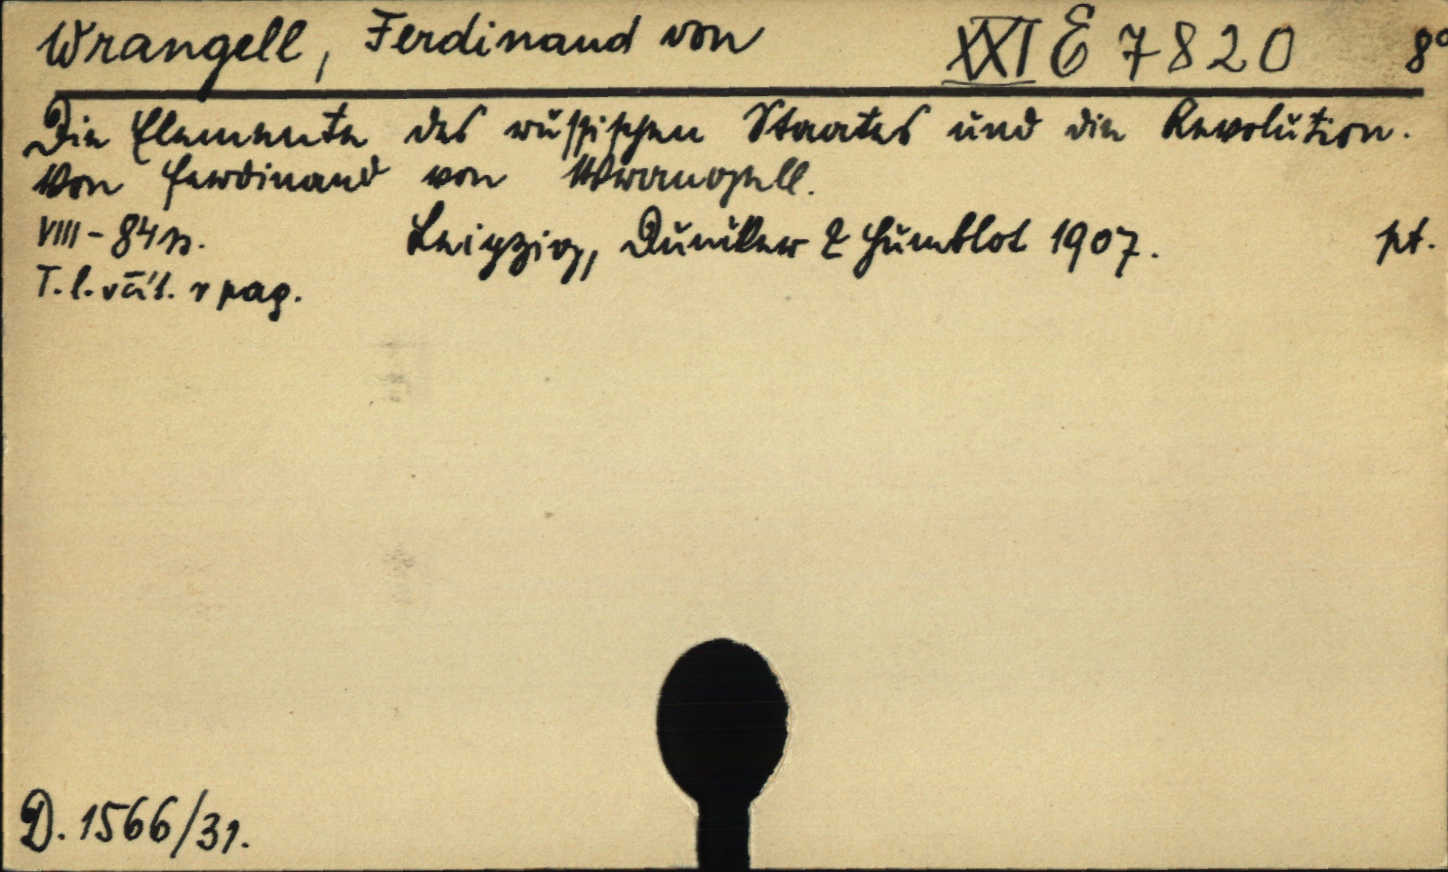 Wrangell, Ferdinand von XXI E 7820 8°
Die Elemente des russischen Staates und die Revolution.
Von Ferdinand von Wrangell.
VIII - 84 p. Leipzig, Duncker & Humblot 1907. pt.
T. l. včít. v pag.
D. 1566/31.